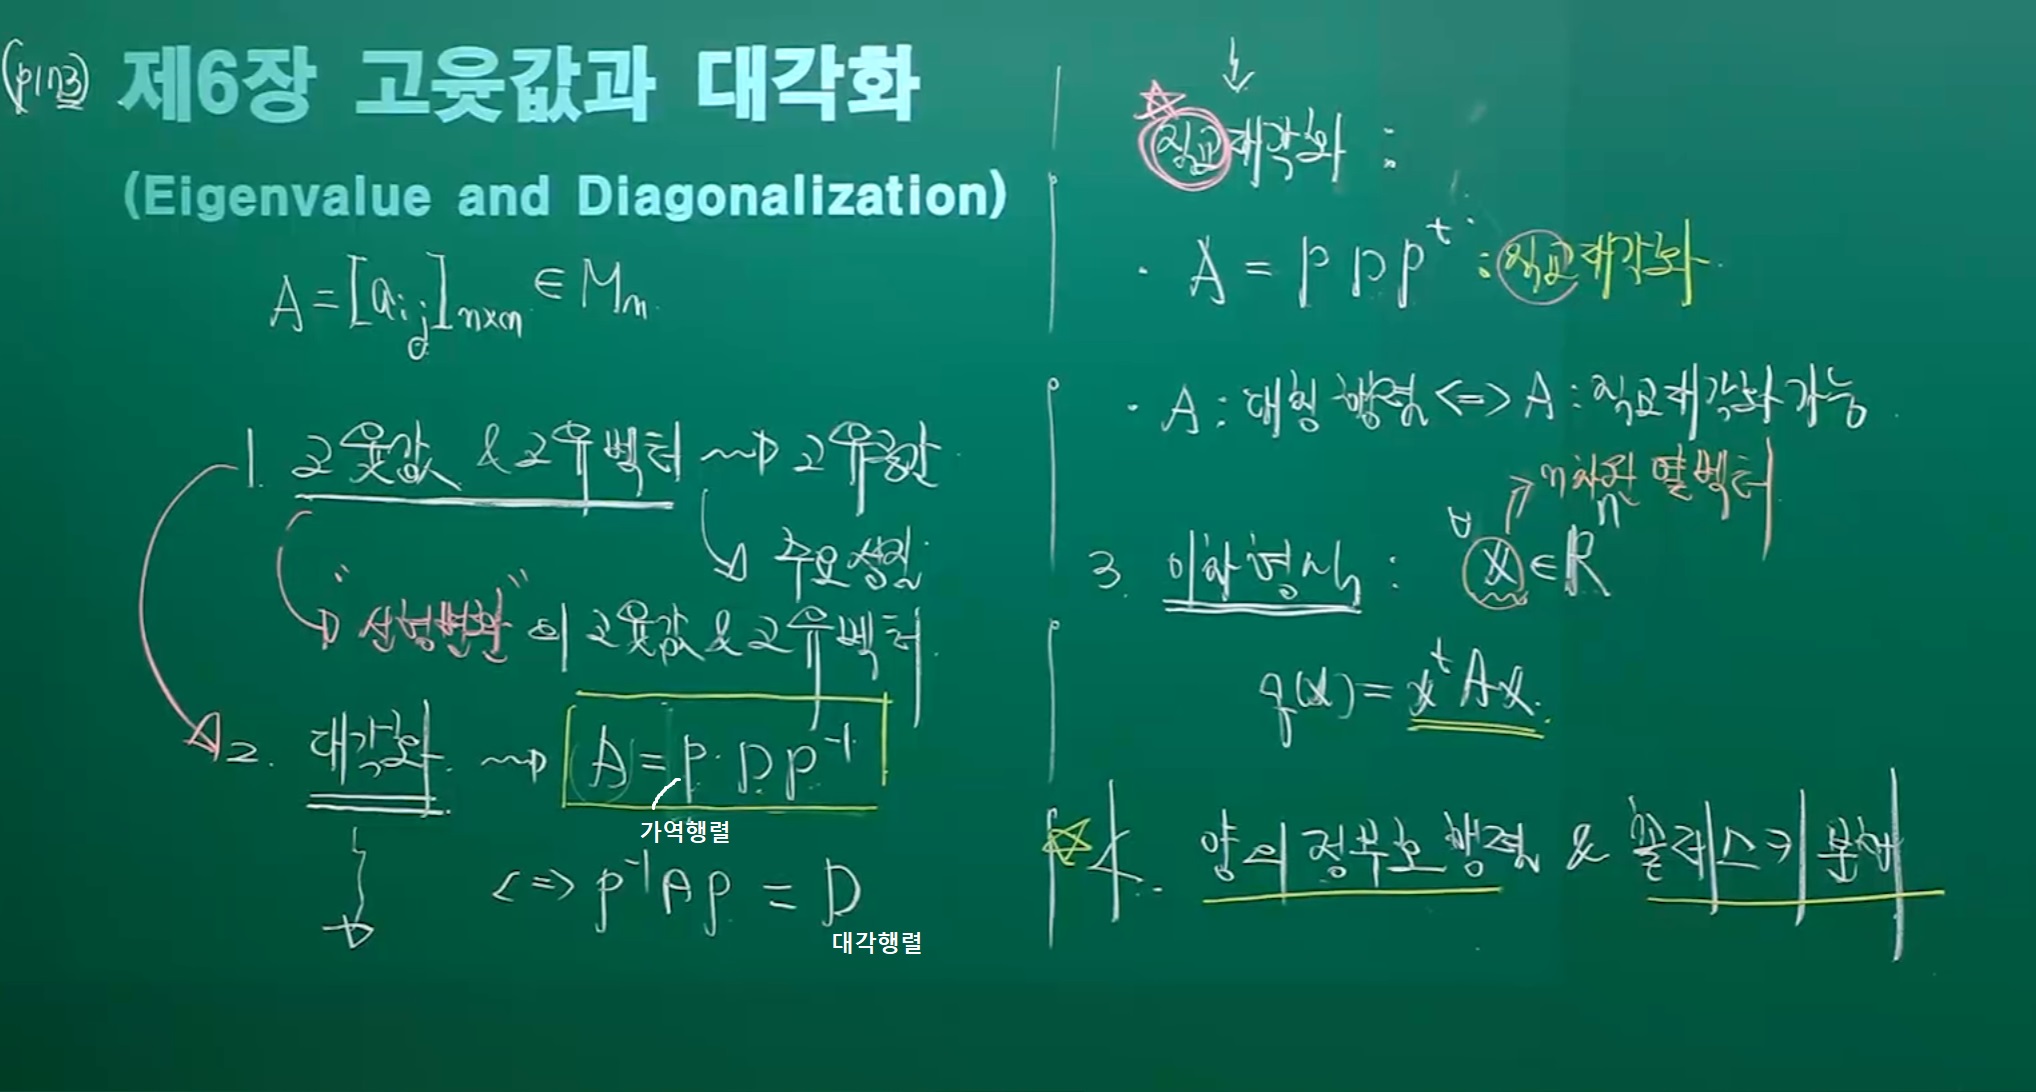 (p173) 제6장 고윳값과 대각화
(Eigenvalue and Diagonalization)
A = [aij]n×n ∈ Mn
1. 고윳값 & 고유벡터 ⇝ 고유공간
주요성질
"선형변환"의 고윳값 & 고유벡터
2. 대각화 ⇝ A = P·DP⁻¹
가역행렬
<=> P⁻¹AP = D
대각행렬
직교대각화 :
· A = PDPᵗ : 직교대각화
· A : 대칭행렬 <=> A : 직교대각화 가능
n차원 열벡터
3. 이차형식 : ∀x ∈ Rⁿ
q(x) = xᵗAx.
4. 양의 정부호 행렬 & 촐레스키 분해